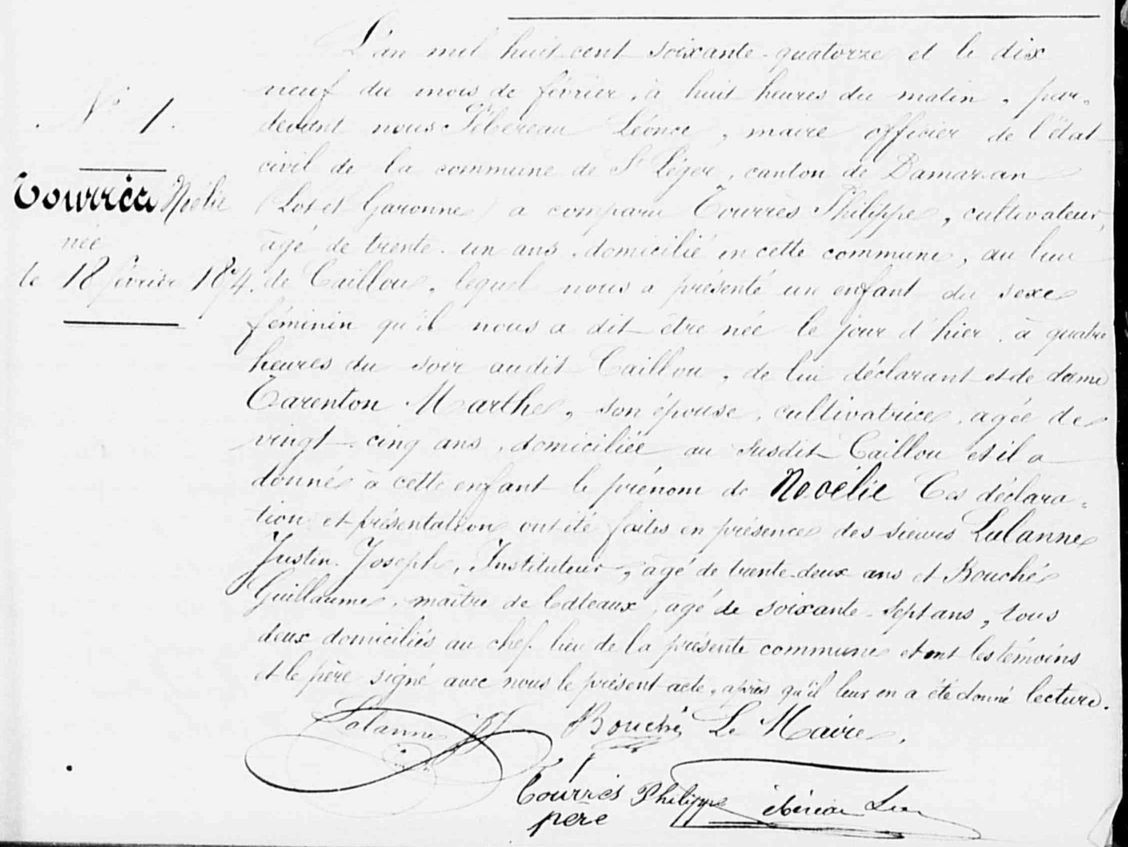 L'an mil huit cent soixante-quatorze et le dix
neuf du mois de février, à huit heures du matin, par-
devant nous Léonce, maire officier de l'état
civil de la commune de St Léger, canton de Damazan
(Lot et Garonne) a comparu Tourrès Philippe, cultivateur,
âgé de trente-un ans, domicilié en cette commune, au lieu
de Caillou, lequel nous a présenté un enfant du sexe
féminin qu'il nous a dit être née le jour d'hier, à quatre
heures du soir audit Caillou, de lui déclarant et de dame
Tarenton Marthe, son épouse, cultivatrice, agée de
vingt-cinq ans, domiciliée au susdit Caillou et il a
donné à cette enfant le prénom de Noélie Ces déclara-
tion et présentation ont été faites en présence des sieurs Lalanne
Justin Joseph, Instituteur, âgé de trente-deux ans et Bouché
Guillaume, maître de bateaux, âgé de soixante-sept ans, tous
deux domiciliés au chef-lieu de la présente commune et ont les témoins
et le père signé avec nous le présent acte, après qu'il leur en a été donné lecture.
N° 1.
Tourrès Noélie
née
le 18 février 1874.
Lalanne JJ Bouché Le Maire,
Tourrès Philippe
père